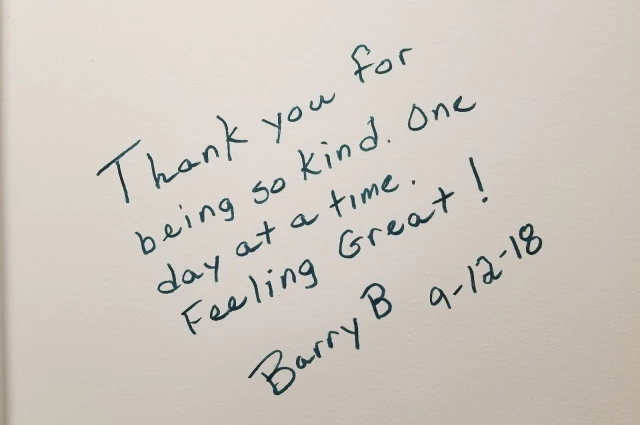 Thank you for
being so kind. One
day at a time.
Feeling Great!
Barry B 9-12-18